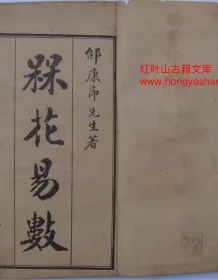 邵康節先生著
槑花易數
红叶山古籍文库
www.hongyeshan